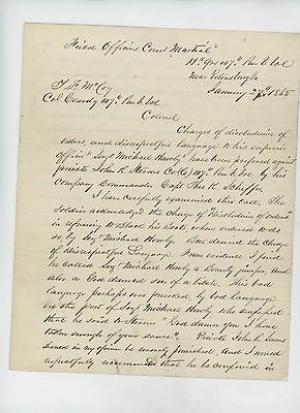 Field Officers Court Martial
Hd Qrs 107th Pa V. Vol
Near Petersburg Va
January 27th 1865
T. F. McCoy
Col Comdg 107th Pa V. Vol
Colonel
Charges of disobedience of
orders and disrespectful language to his superior
officer "Sergt Michael Hawly" have been preferred against
private John R. Stevens Co (C) 107th Pa V. Vol by his
Company Commander Capt Theo K. Scheffer.
I have carefully examined this case. The
Soldier acknowledged the Charge of disobedience of orders
in refusing to Black his Boots when ordered to do
so, by Sergt Michael Hawly. But denied the Charge
of Disrespectful Language. From evidence I find
he called Sergt Michael Hawly a Bounty jumper and
also a God damned son of a bitch. This bad
language perhaps was provoked by bad language
on the part of Sergt Michael Hawly who confessed
that he said to Stevens "God damn you I have
taken enough of your sauce". Private John R. Stevens
should in my opinion be severely punished, and I would
respectfully recommend that he be confined in